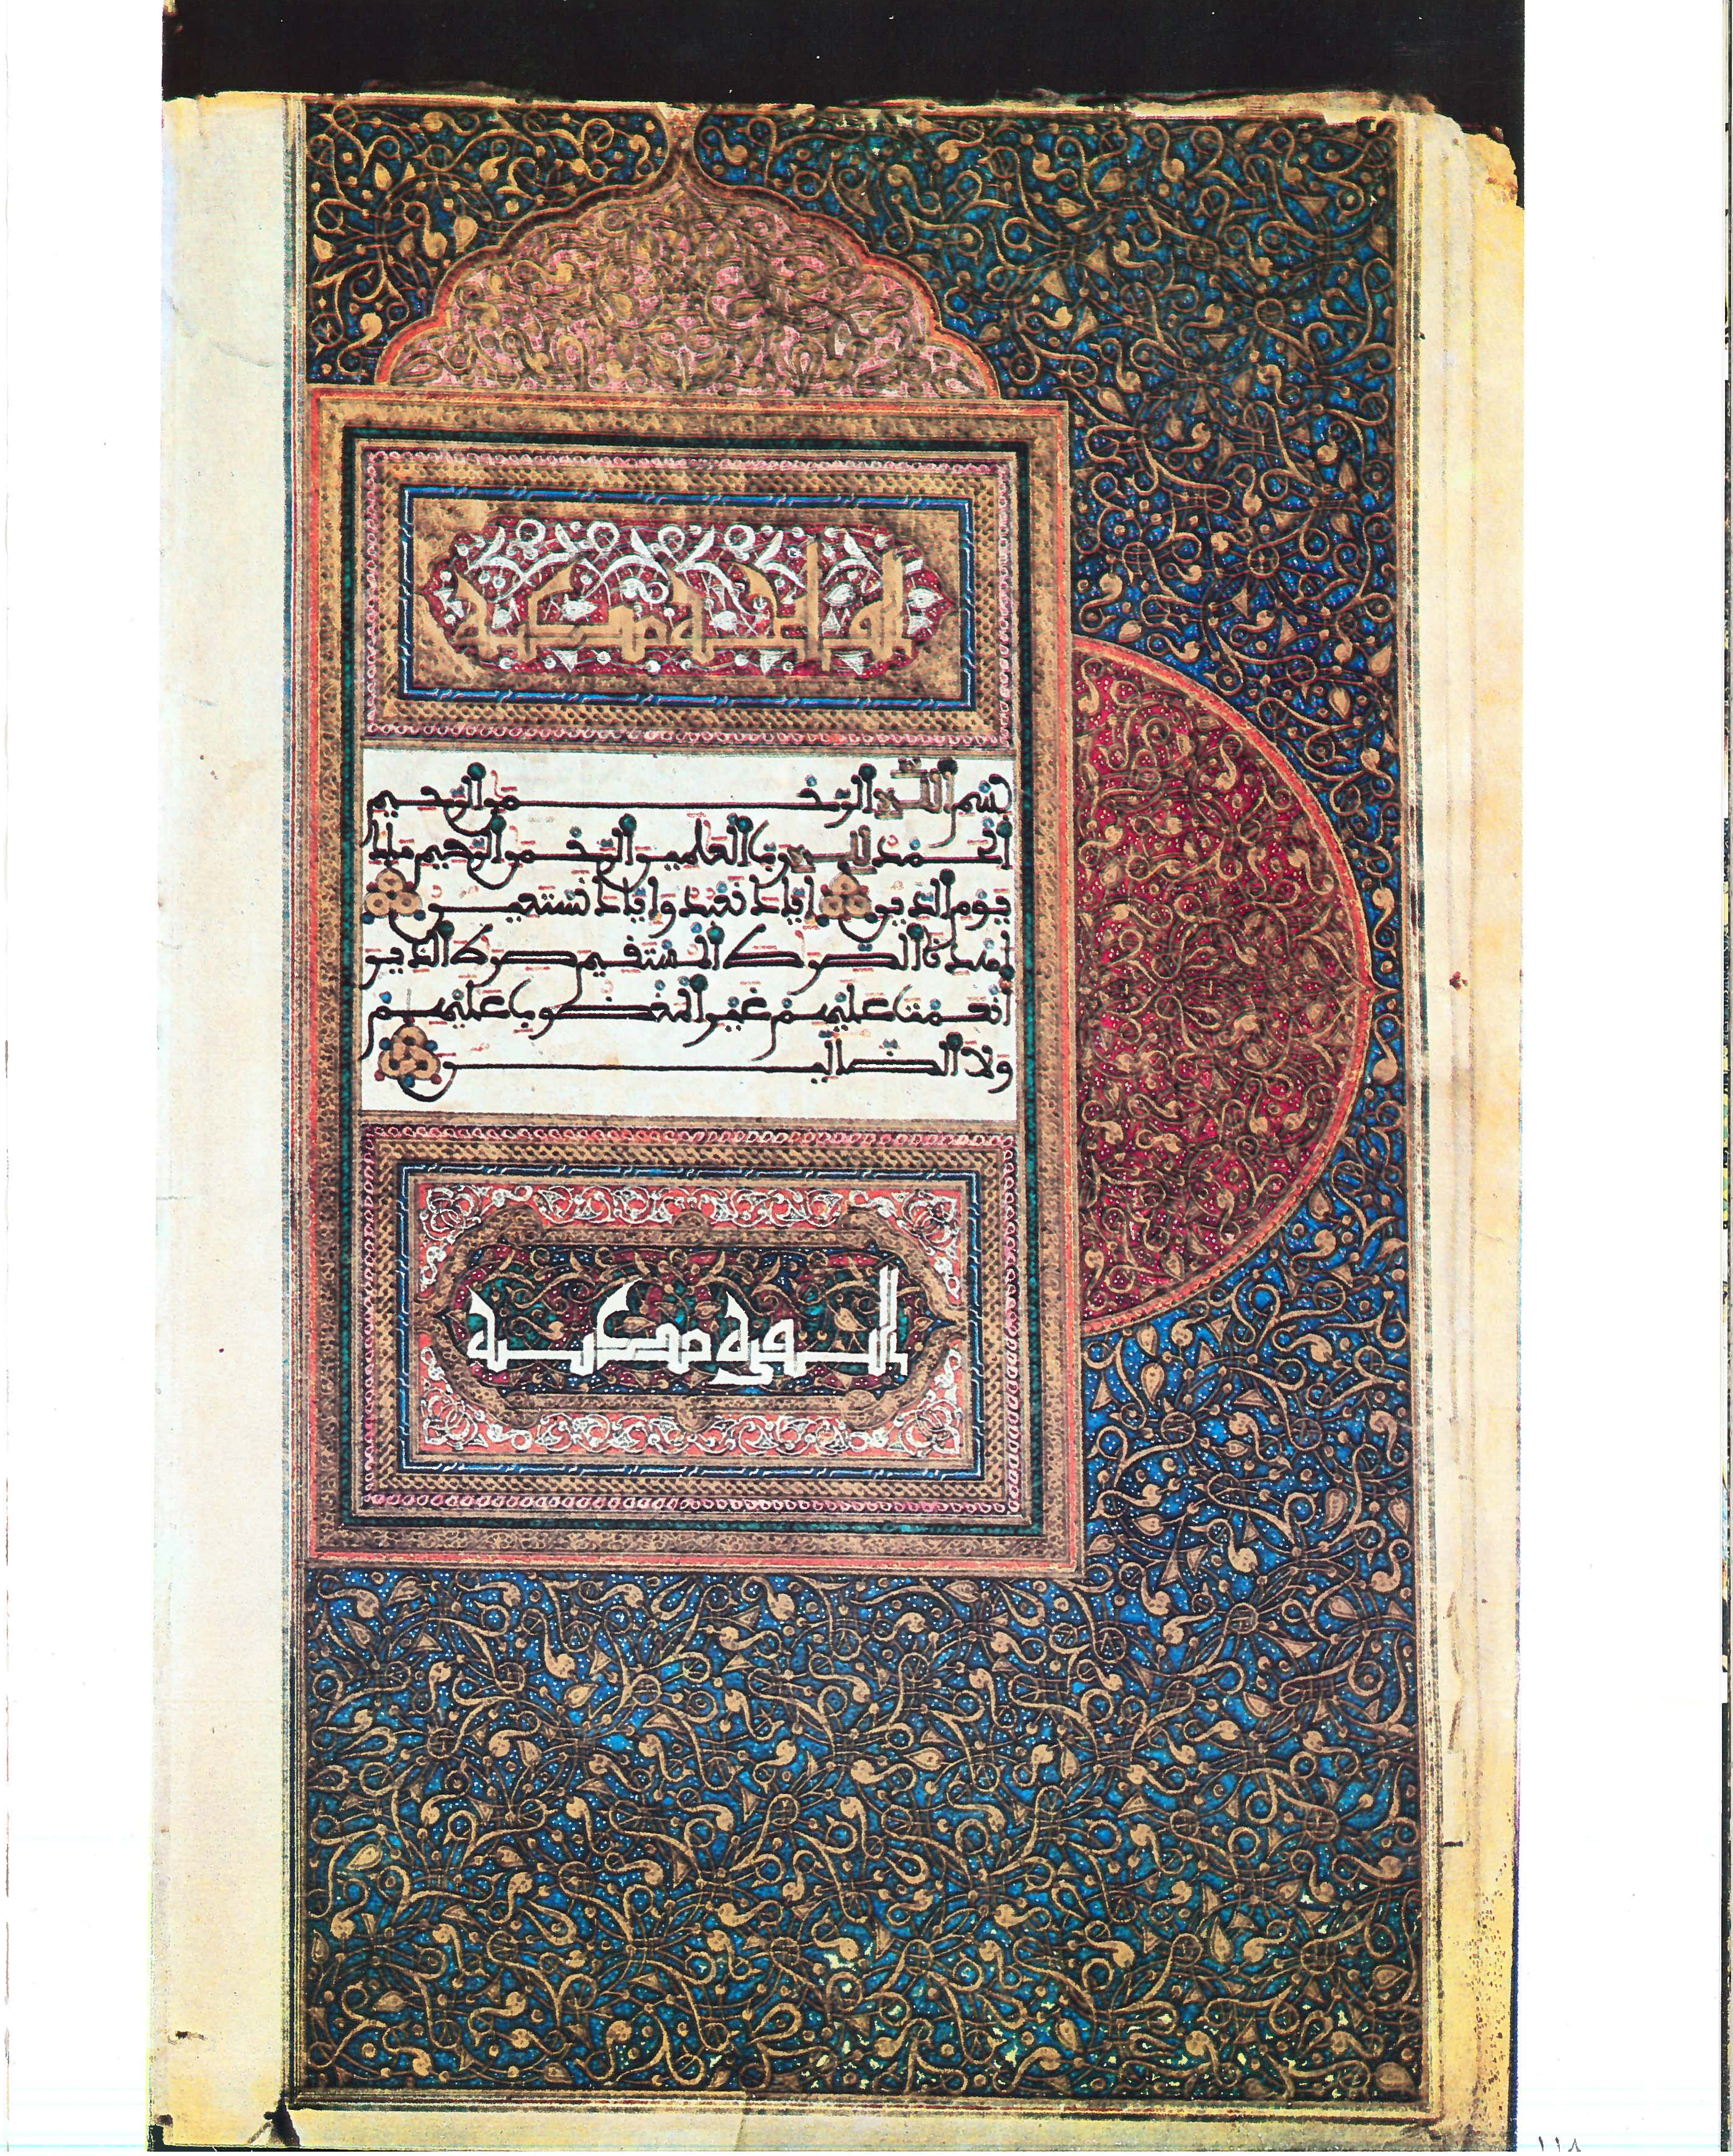 الفاتحة مكية
بِسْمِ اللَّهِ الرَّحْمَٰنِ الرَّحِيمِ
الْحَمْدُ لِلَّهِ رَبِّ الْعَٰلَمِينَ الرَّحْمَٰنِ الرَّحِيمِ مَلِكِ
يَوْمِ الدِّينِ إِيَّاكَ نَعْبُدُ وَإِيَّاكَ نَسْتَعِينُ
اهْدِنَا الصِّرَٰطَ الْمُسْتَقِيمَ صِرَٰطَ الَّذِينَ
أَنْعَمْتَ عَلَيْهِمْ غَيْرِ الْمَغْضُوبِ عَلَيْهِمْ
وَلَا الضَّالِّينَ
السورة مكية
١١٨